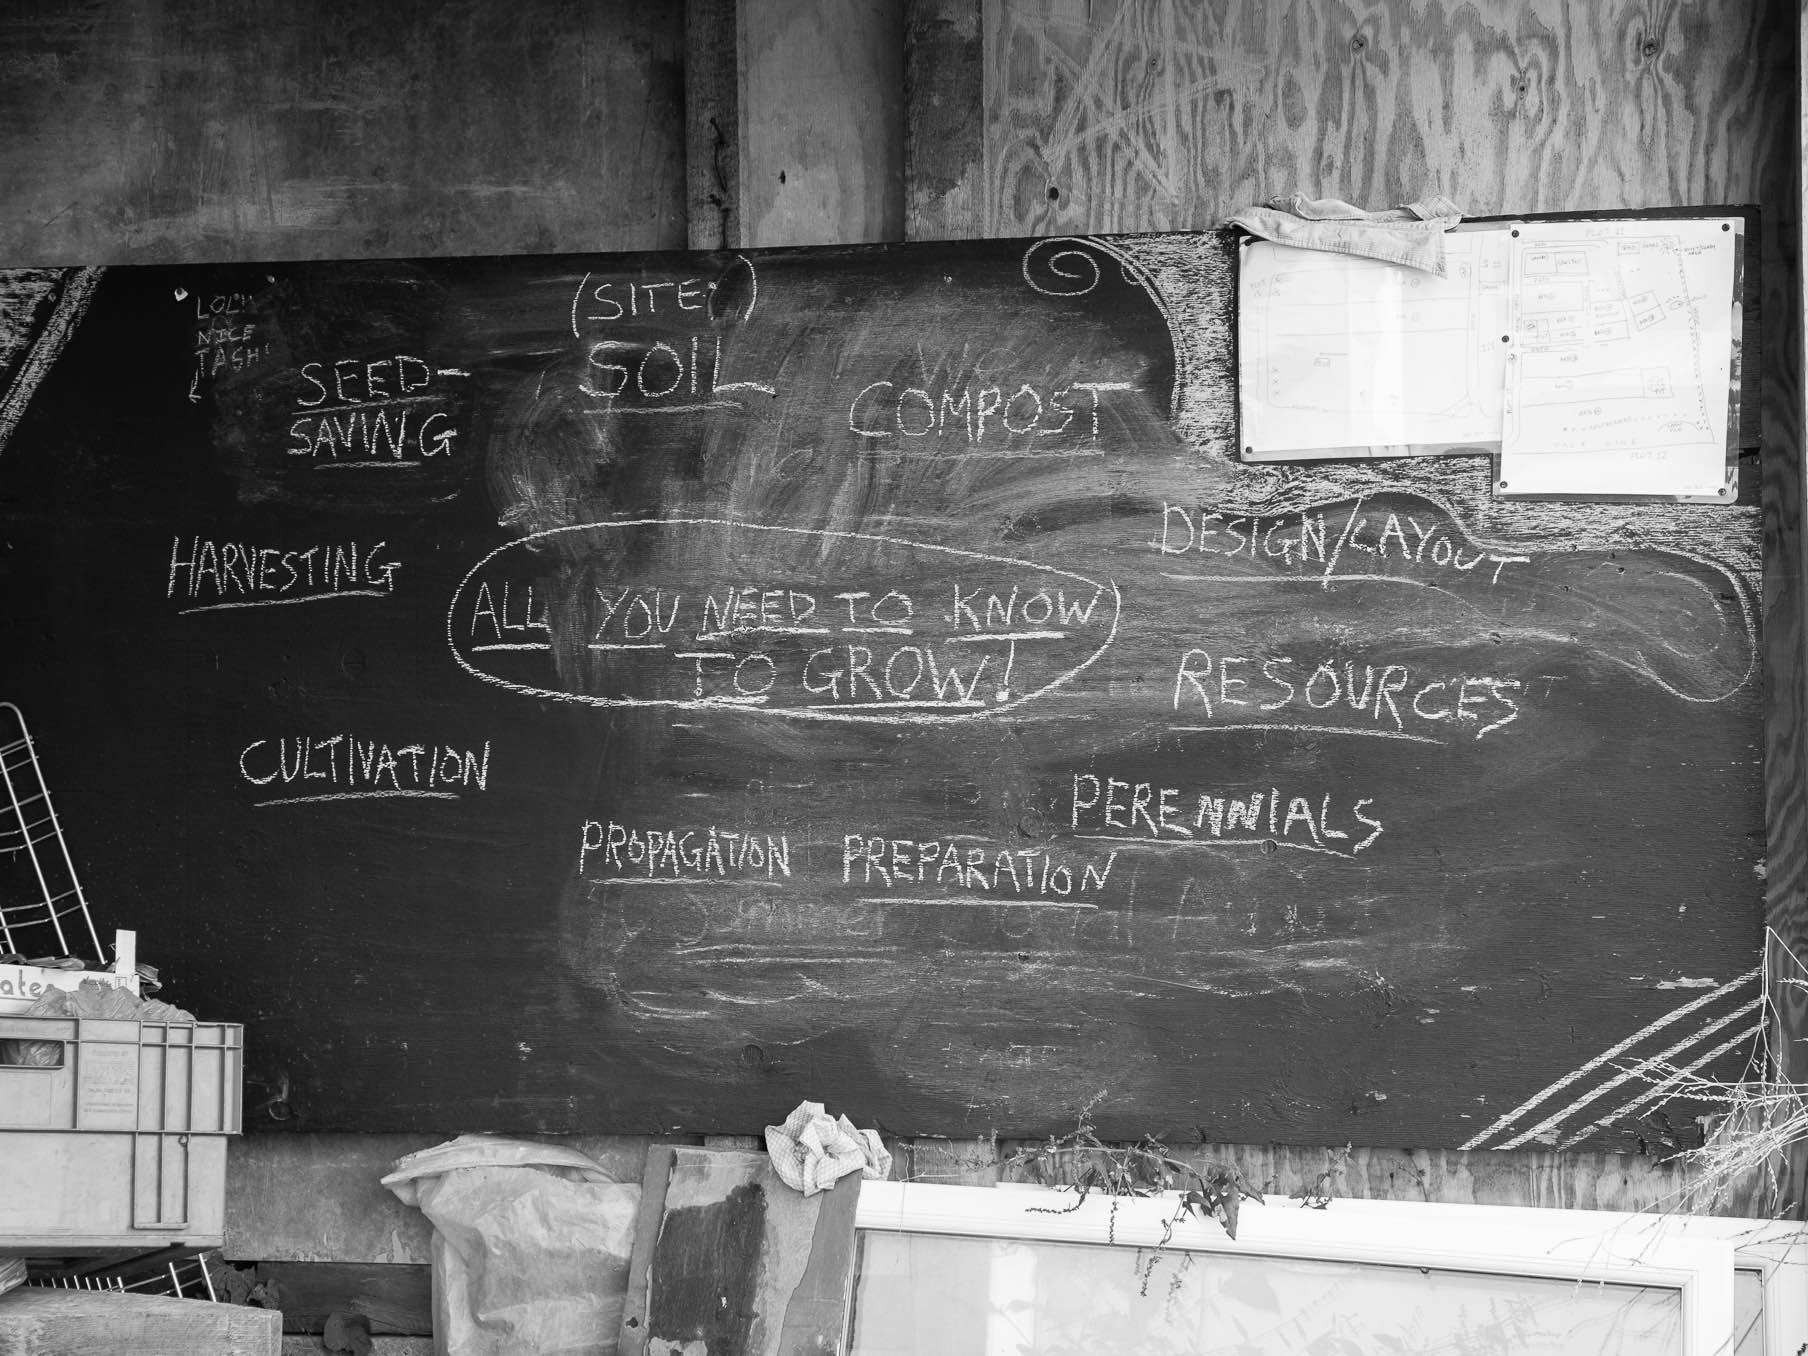 (SITE)
SOIL
NICE
SEED-
SAVING
COMPOST
HARVESTING
DESIGN/LAYOUT
ALL YOU NEED TO KNOW
TO GROW!
RESOURCES
CULTIVATION
PERENNIALS
PROPAGATION
PREPARATION
PLOT 11
PLOT 12